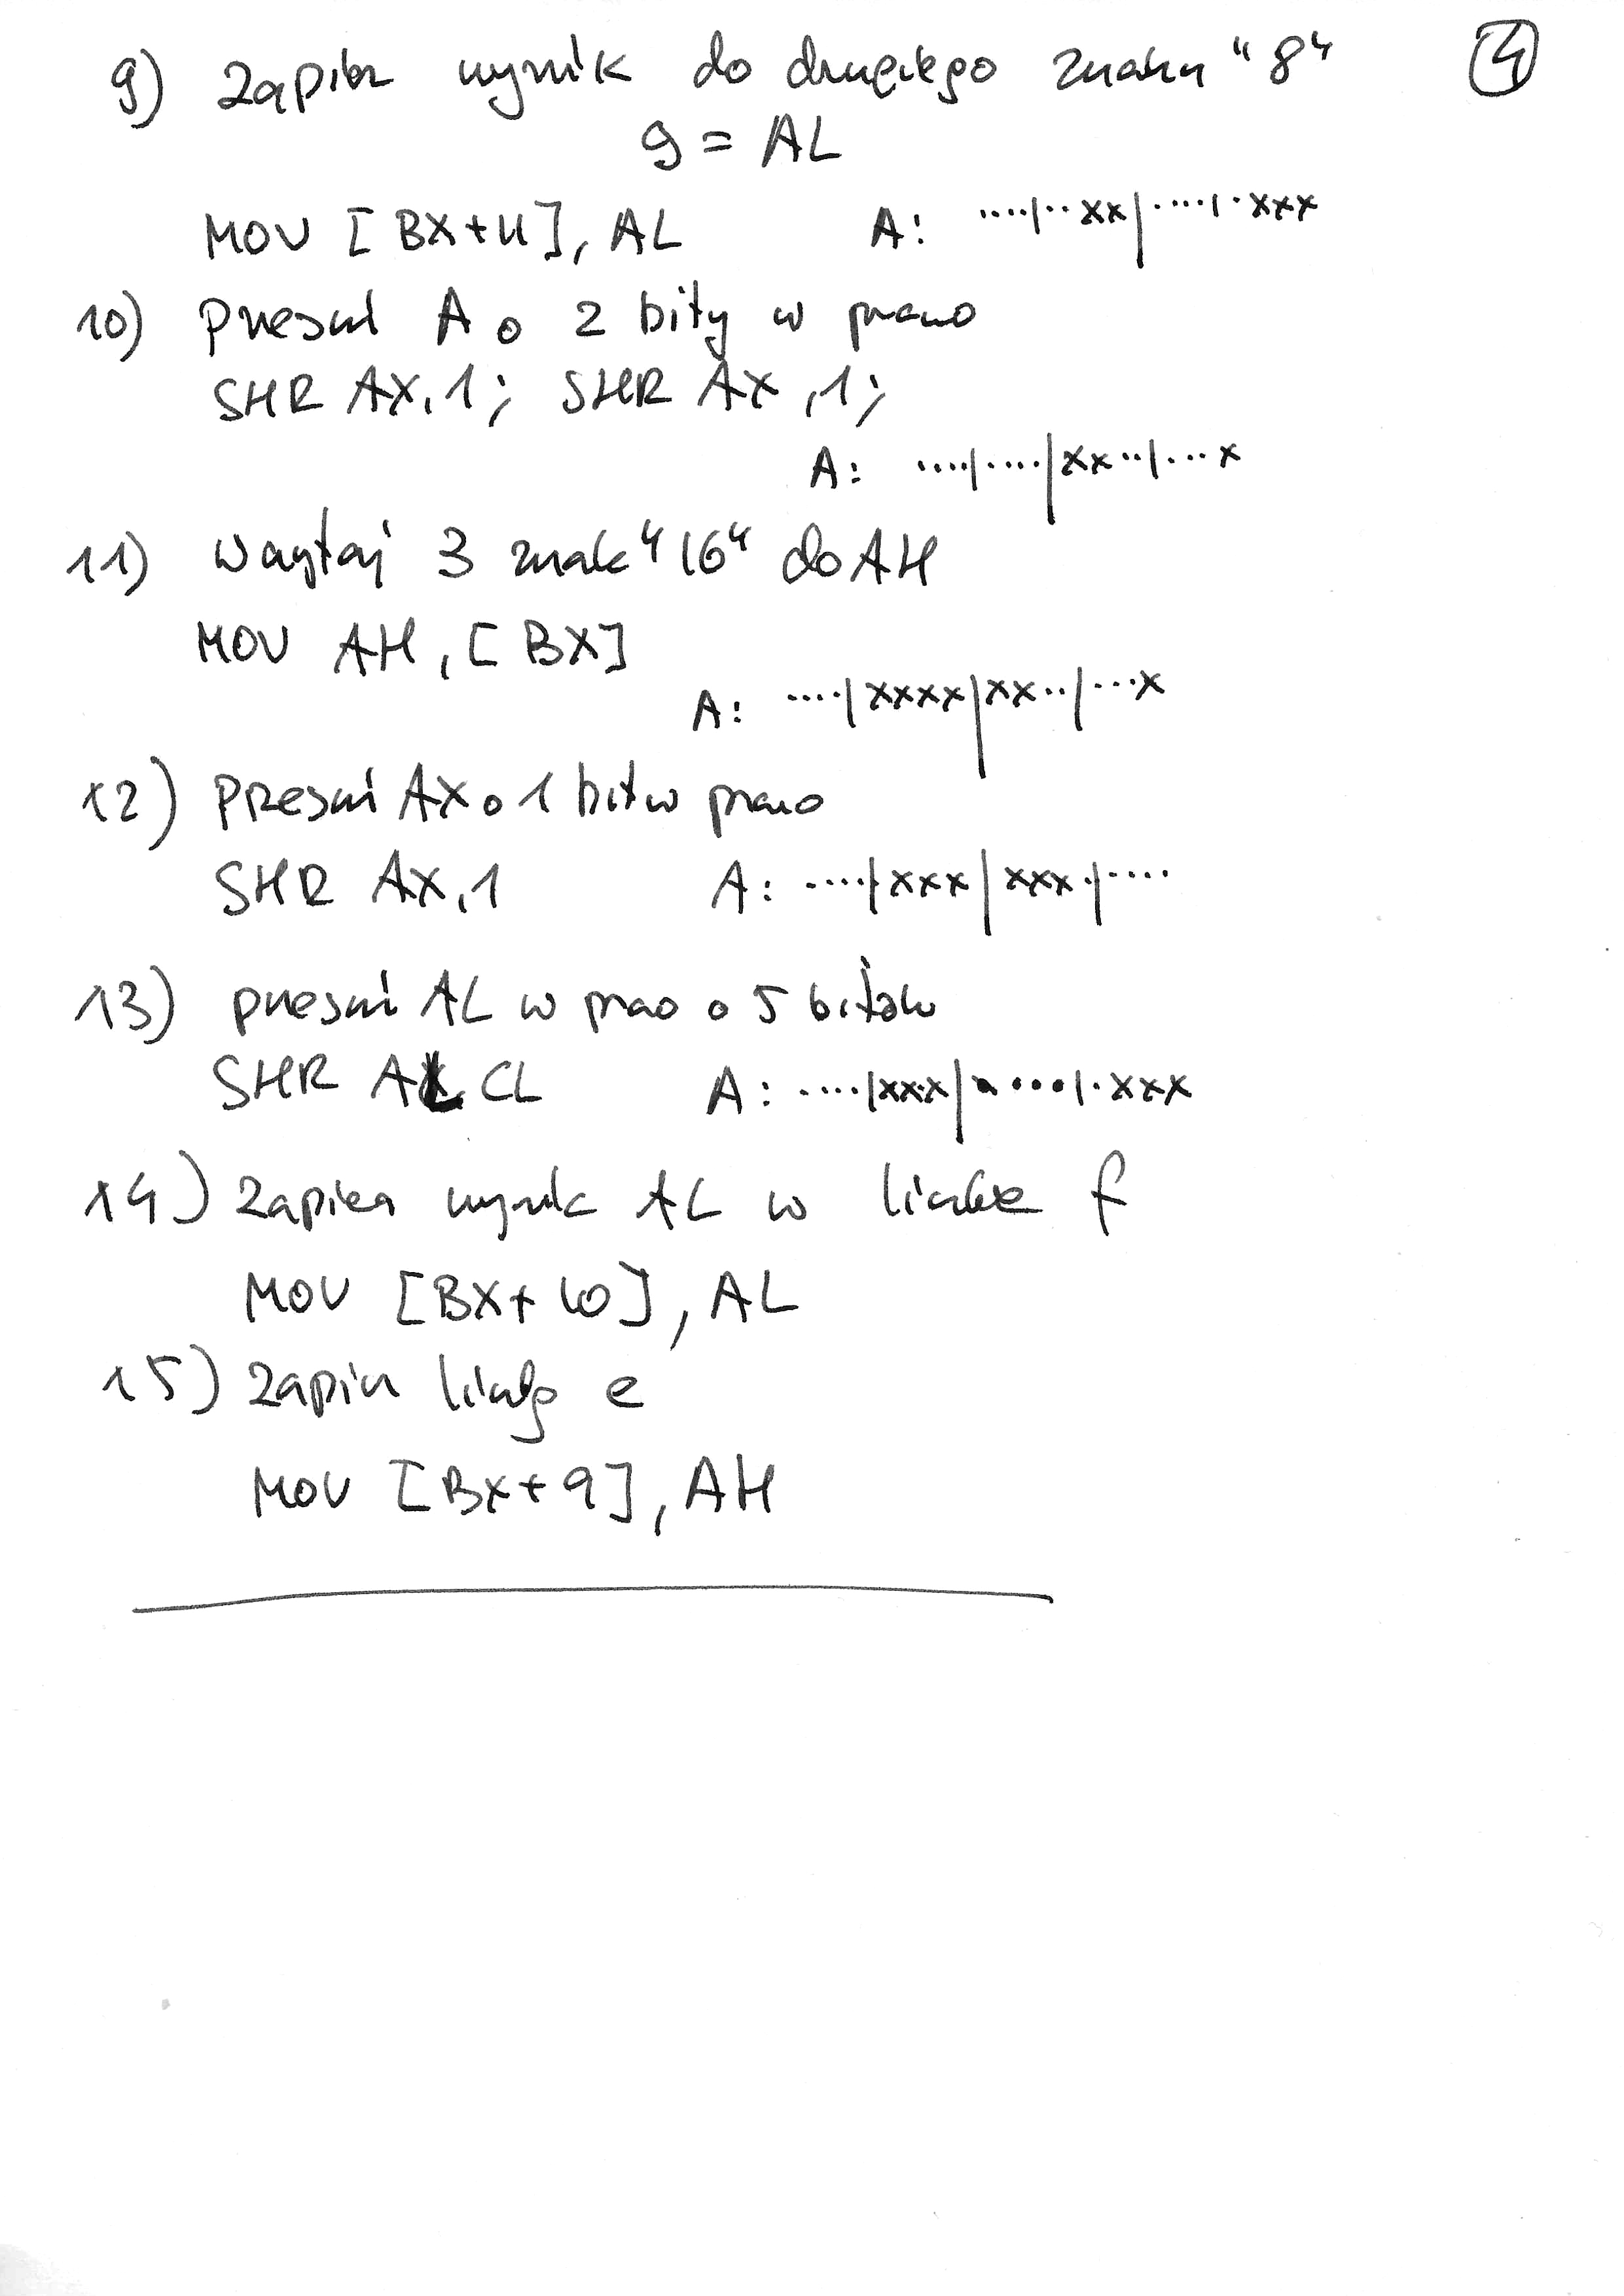 9) Zapisz wynik do drugiego znaku "8" 4
g = AL
MOV [BX+11], AL A: ....|..xx|....|.xxx
10) przesuń A o 2 bity w prawo
SHR AX,1; SHR AX,1;
A: ....|....|xx..|...x
11) wczytaj 3 znak "16" do AH
MOV AH, [BX]
A: ....|xxxx|xx..|...x
12) Przesuń AX o 1 bit w prawo
SHR AX,1 A: ....|.xxx|xxx.|....
13) przesuń AL w prawo o 5 bitów
SHR AL CL A: ....|xxx|....|.xxx
14) Zapisz wynik AL w liczbę f
MOV [BX+10], AL
15) Zapisz liczbę e
MOV [BX+9], AH